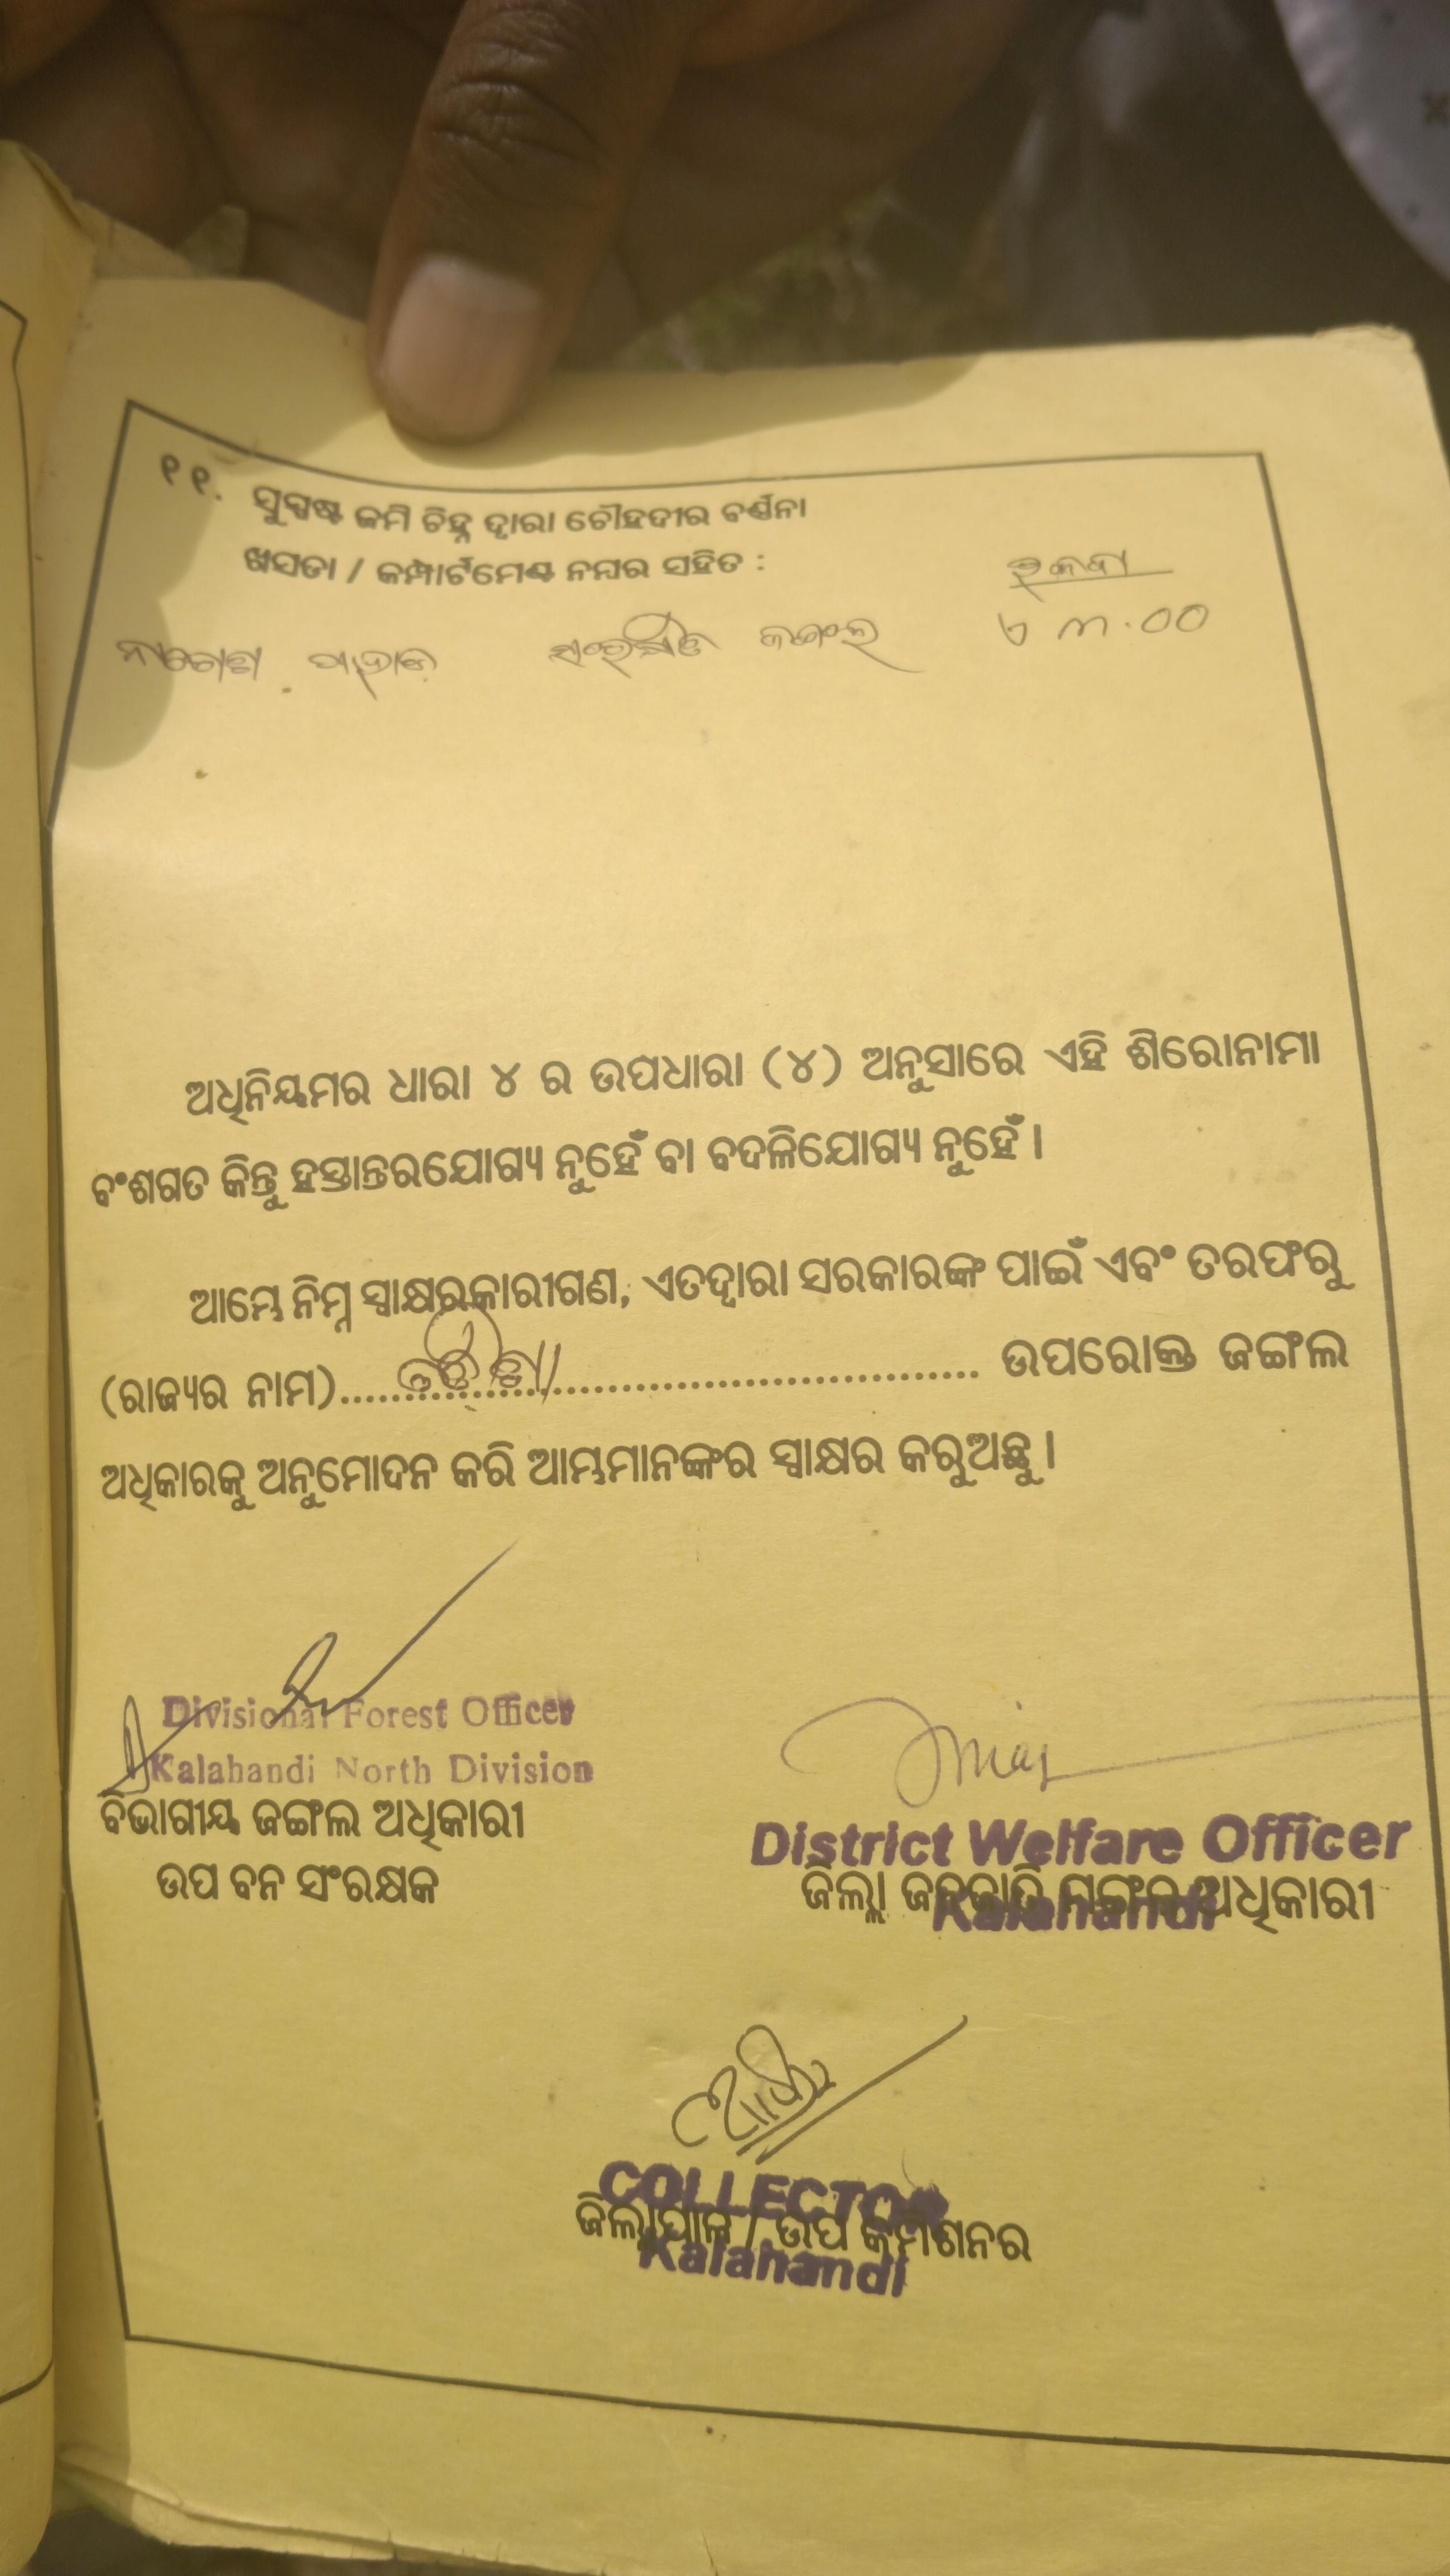 ୧୧. ସୁସ୍ପଷ୍ଟ ଜମି ଚିହ୍ନ ଦ୍ୱାରା ଚୌହଦୀର ବର୍ଣ୍ଣନା
ଖସଡା / କମ୍ପାର୍ଟମେଣ୍ଟ ନମ୍ବର ସହିତ :
ସଂରକ୍ଷିତ ଜଙ୍ଗଲ ଏ ୩.୦୦
ଅଧିନିୟମର ଧାରା ୪ ର ଉପଧାରା (୪) ଅନୁସାରେ ଏହି ଶିରୋନାମା
ବଂଶଗତ କିନ୍ତୁ ହସ୍ତାନ୍ତରଯୋଗ୍ୟ ନୁହେଁ ବା ବଦଳିଯୋଗ୍ୟ ନୁହେଁ ।
ଆମ୍ଭେ ନିମ୍ନ ସ୍ୱାକ୍ଷରକାରୀଗଣ, ଏତଦ୍ୱାରା ସରକାରଙ୍କ ପାଇଁ ଏବଂ ତରଫରୁ
(ରାଜ୍ୟର ନାମ)..........ଓଡ଼ିଶା.......... ଉପରୋକ୍ତ ଜଙ୍ଗଲ
ଅଧିକାରକୁ ଅନୁମୋଦନ କରି ଆମ୍ଭମାନଙ୍କର ସ୍ୱାକ୍ଷର କରୁଅଛୁ ।
Divisional Forest Officer
Kalahandi North Division
ବିଭାଗୀୟ ଜଙ୍ଗଲ ଅଧିକାରୀ
ଉପ ବନ ସଂରକ୍ଷକ
District Welfare Officer
ଜିଲ୍ଲା ଜନଜାତି ମଙ୍ଗଳ ଅଧିକାରୀ
Kalahandi
COLLECTOR
ଜିଲ୍ଲାପାଳ / ଉପ କମିଶନର
Kalahandi